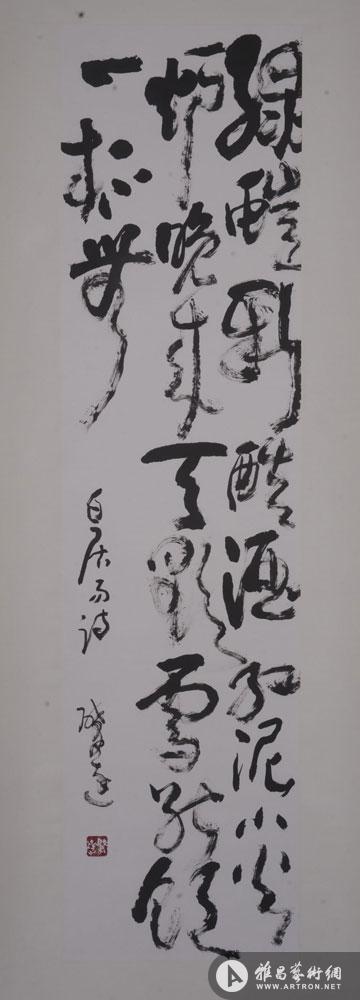 緑螘新醅酒红泥小火
炉晚来天欲雪能饮
一杯無
白居易诗
雅昌藝術網
WWW.ARTRON.NET